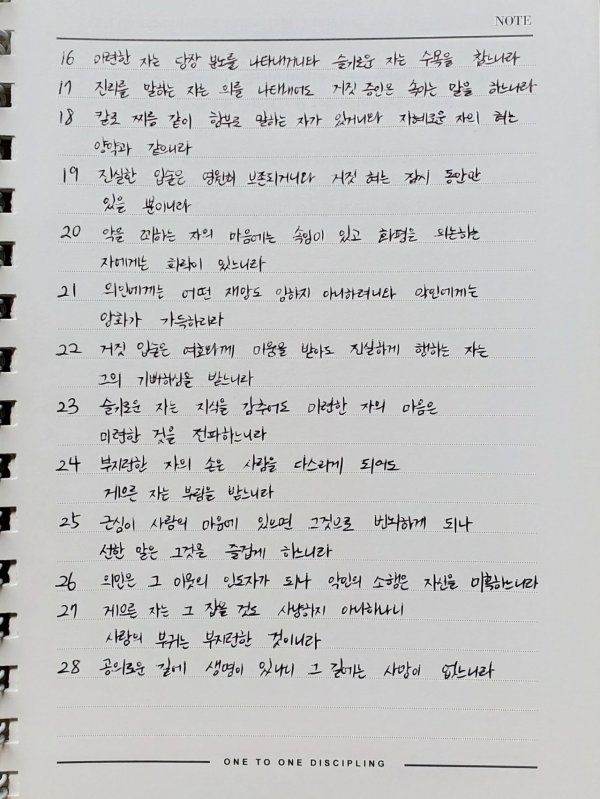 NOTE
16 미련한 자는 당장 분노를 나타내거니와 슬기로운 자는 수욕을 참느니라
17 진리를 말하는 자는 의를 나타내어도 거짓 증인은 속이는 말을 하느니라
18 칼로 찌름 같이 함부로 말하는 자가 있거니와 지혜로운 자의 혀는
양약과 같으니라
19 진실한 입술은 영원히 보존되거니와 거짓 혀는 잠시 동안만
있을 뿐이니라
20 악을 꾀하는 자의 마음에는 속임이 있고 화평을 의논하는
자에게는 희락이 있느니라
21 의인에게는 어떤 재앙도 임하지 아니하려니와 악인에게는
앙화가 가득하리라
22 거짓 입술은 여호와께 미움을 받아도 진실하게 행하는 자는
그의 기뻐하심을 받느니라
23 슬기로운 자는 지식을 감추어도 미련한 자의 마음은
미련한 것을 전파하느니라
24 부지런한 자의 손은 사람을 다스리게 되어도
게으른 자는 부림을 받느니라
25 근심이 사람의 마음에 있으면 그것으로 번뇌하게 되나
선한 말은 그것을 즐겁게 하느니라
26 의인은 그 이웃의 인도자가 되나 악인의 소행은 자신을 미혹하느니라
27 게으른 자는 그 잡을 것도 사냥하지 아니하나니
사람의 부귀는 부지런한 것이니라
28 공의로운 길에 생명이 있나니 그 길에는 사망이 없느니라
ONE TO ONE DISCIPLING